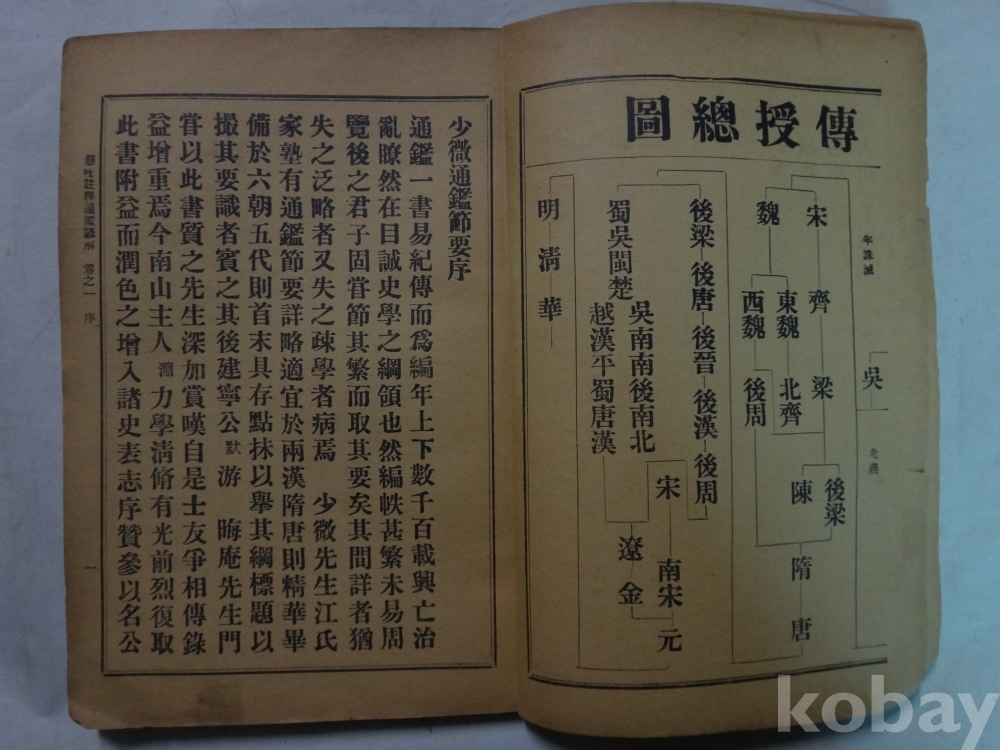 傳授總圖
年誅滅
吳
北燕
宋 齊 梁
後梁
陳
魏
東魏 北齊
西魏 後周
隋 唐
後梁 後唐 後晉 後漢 後周
蜀吳閩楚
吳南南後南北
越漢平蜀唐漢
宋 南宋 元
遼 金
明 淸 華
少微通鑑節要序
通鑑一書易紀傳而爲編年上下數千百載興亡治
亂瞭然在目誠史學之綱領也然編帙甚繁未易周
覽後之君子固甞節其繁而取其要矣其間詳者猶
失之泛略者又失之疎學者病焉 少微先生江氏
家塾有通鑑節要詳略適宜於兩漢隋唐則精華畢
備於六朝五代則首末具存點抹以舉其綱標題以
撮其要識者賓之其後建寧公默游 晦庵先生門
甞以此書質之先生深加賞嘆自是士友爭相傳錄
益增重焉今南山主人淵力學淸脩有光前烈復取
此書附益而潤色之增入諸史表志序贊參以名公
註釋通鑑諺解 卷之一 序
一
kobay